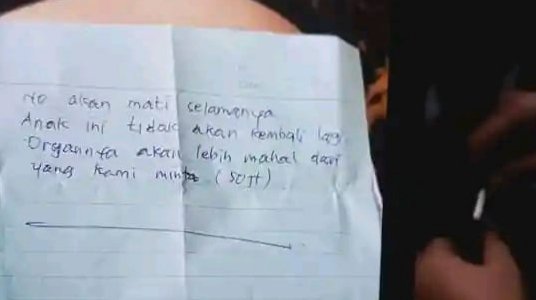 No akan mati selamanya
Anak ini tidak akan kembali lagi
Organnya akan lebih mahal dari
yang kami minta (50Jt)